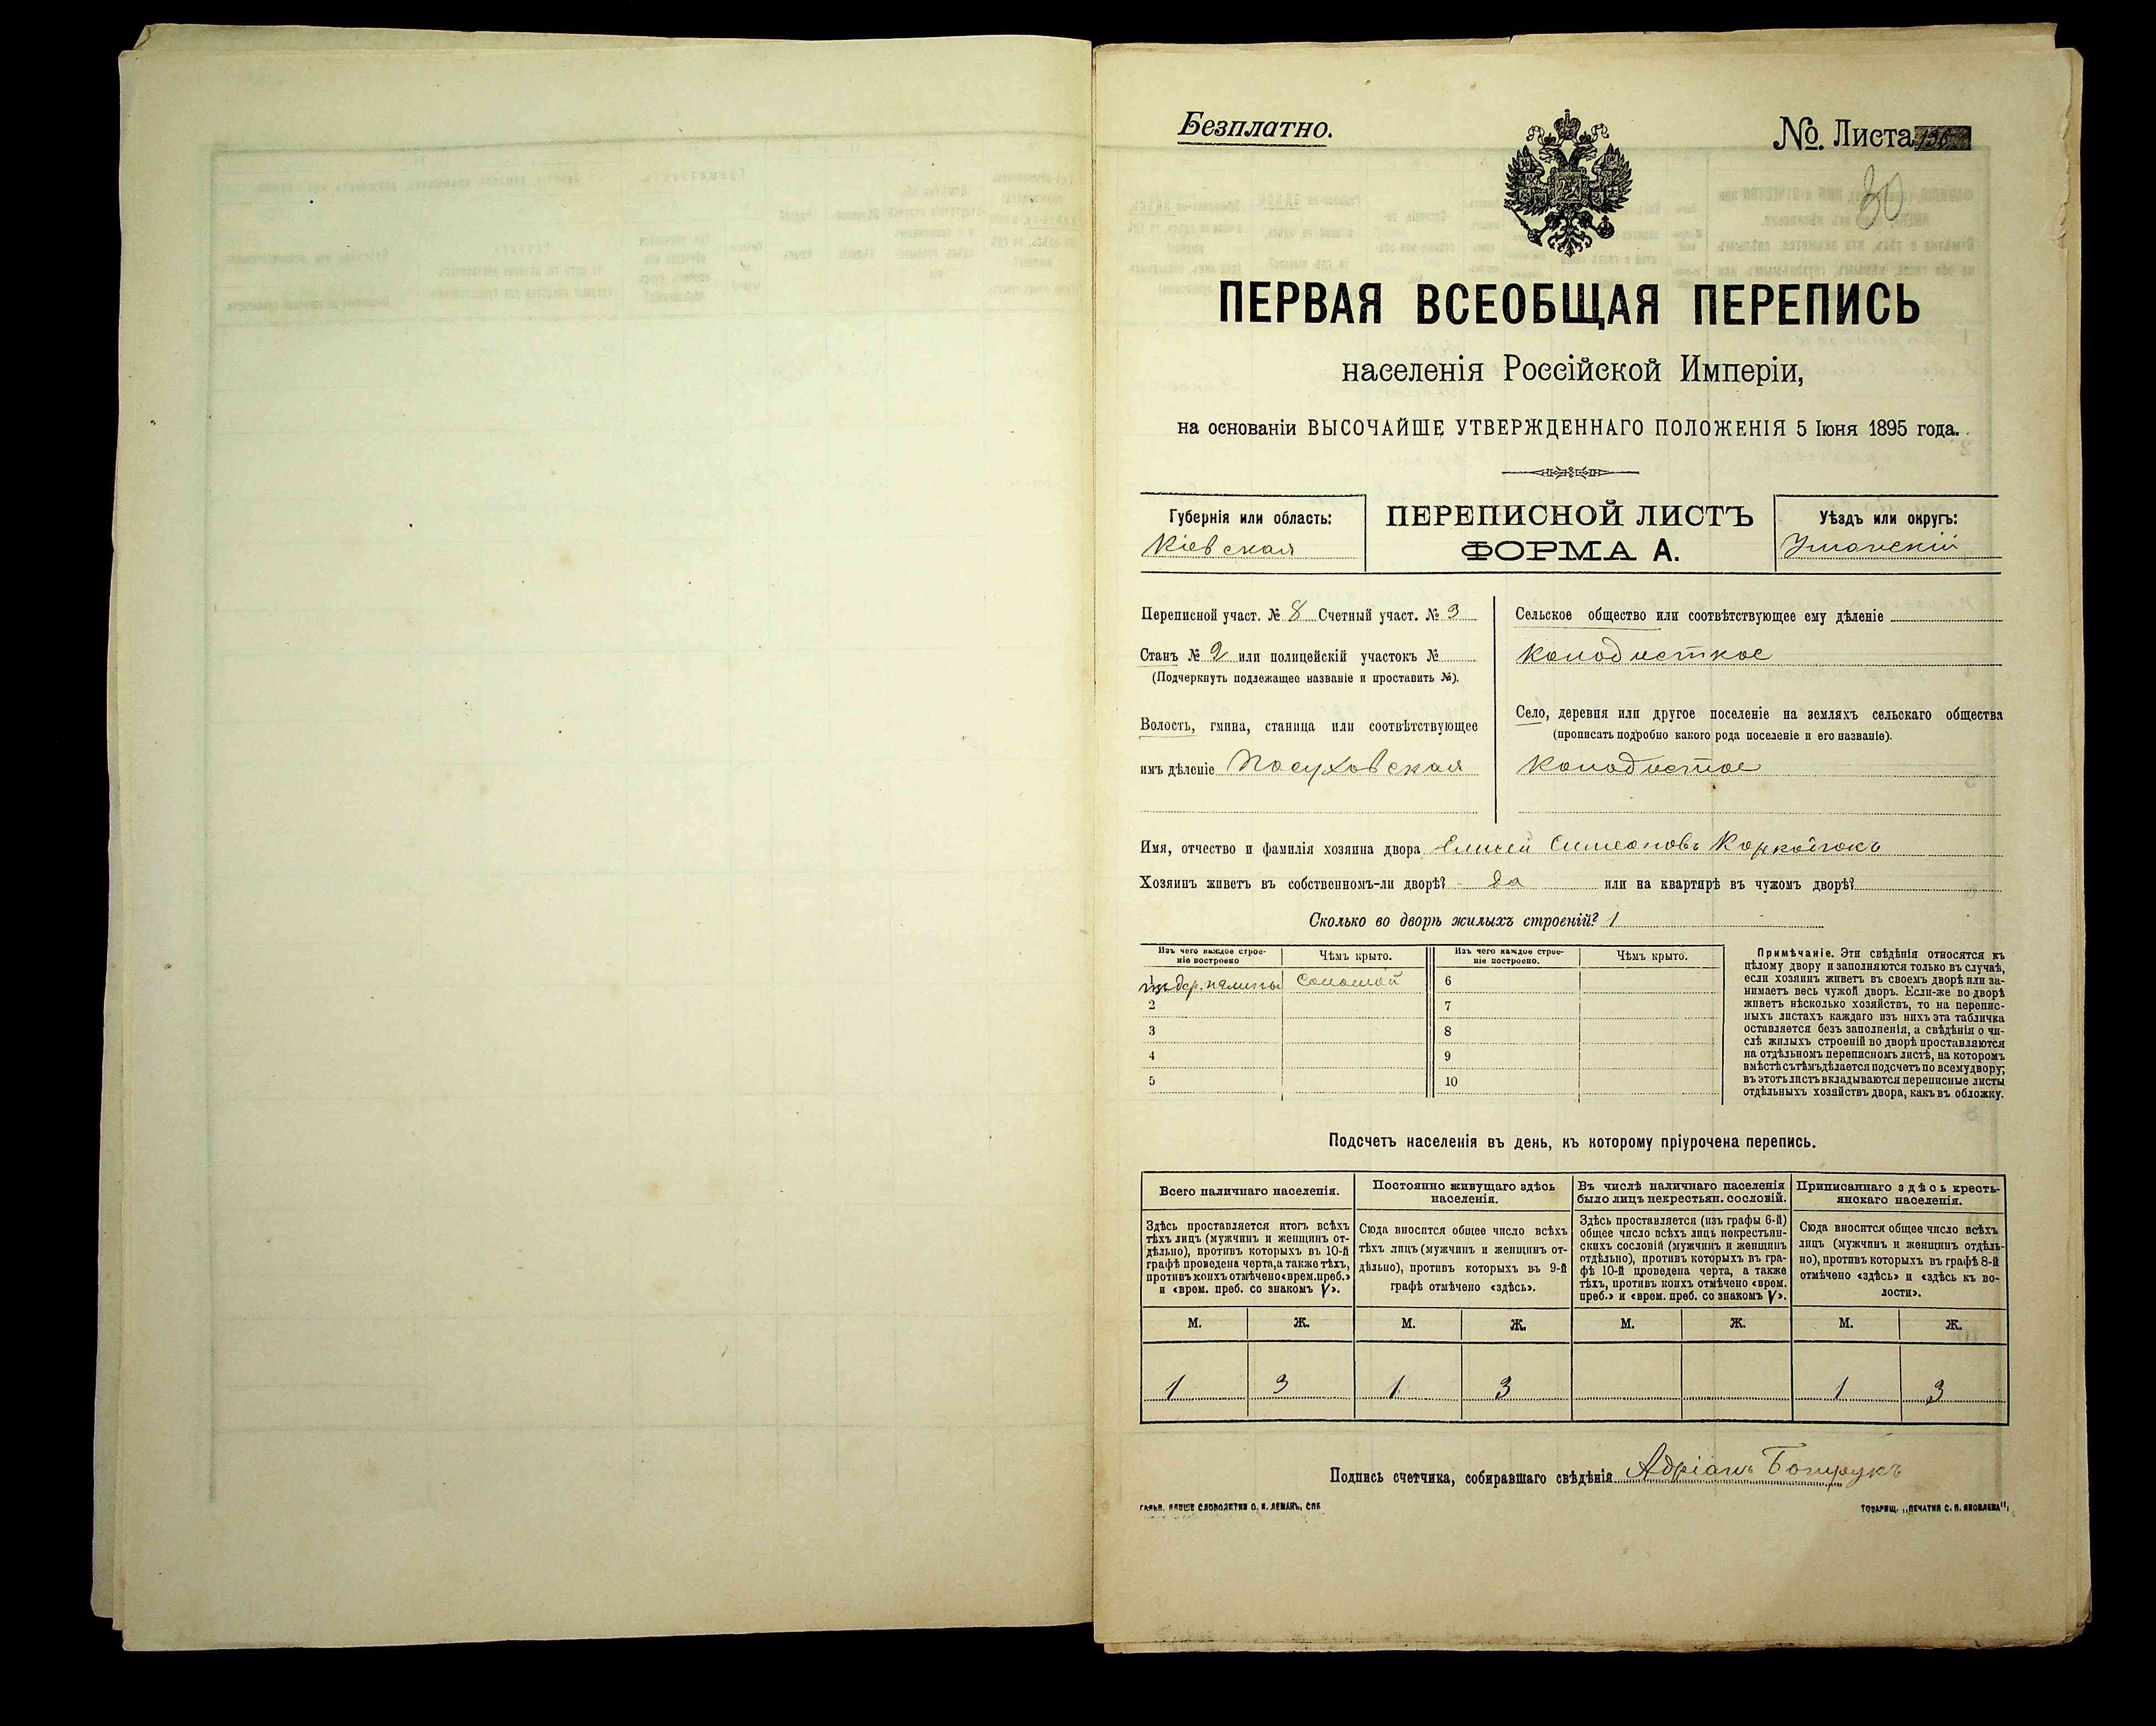 Безплатно.
№. Листа
30
ПЕРВАЯ ВСЕОБЩАЯ ПЕРЕПИСЬ
населенія Россійской Имперіи,
на основаніи ВЫСОЧАЙШЕ УТВЕРЖДЕННАГО ПОЛОЖЕНІЯ 5 Іюня 1895 года.
Губернія или область:
Кіевская
ПЕРЕПИСНОЙ ЛИСТЪ
ФОРМА А.
Уѣздъ или округъ:
Уманскій
Переписной участ. № 8 Счетный участ. № 3
Станъ № 2 или полицейскій участокъ №
(Подчеркнуть подлежащее названіе и проставить №).
Волость, гмина, станица или соотвѣтствующее
имъ дѣленіе Посуховская
Сельское общество или соотвѣтствующее ему дѣленіе
Колодисткое
Село, деревня или другое поселеніе на земляхъ сельскаго общества
(прописать подробно какого рода поселеніе и его названіе).
Колодистое
Имя, отчество и фамилія хозяина двора Елисей Симеоновъ
Хозяинъ живетъ въ собственномъ-ли дворѣ? Да или на квартирѣ въ чужомъ дворѣ?
Сколько во дворѣ жилыхъ строеній? 1
Изъ чего каждое строе-
ніе построено
Чѣмъ крыто.
Изъ чего каждое строе-
ніе построено.
Чѣмъ крыто.
изъ дер. и глины Соломой
6
2
7
3
8
4
9
5
10
Примѣчаніе. Эти свѣдѣнія относятся къ
цѣлому двору и заполняются только въ случаѣ,
если хозяинъ живетъ въ своемъ дворѣ или за-
нимаетъ весь чужой дворъ. Если-же во дворѣ
живетъ нѣсколько хозяйствъ, то на перепис-
ныхъ листахъ каждаго изъ нихъ эта табличка
оставляется безъ заполненія, а свѣдѣнія о чи-
слѣ жилыхъ строеній во дворѣ проставляются
на отдѣльномъ переписномъ листѣ, на которомъ
вмѣстѣ съ тѣмъ дѣлается подсчетъ по всему двору;
въ этотъ листъ вкладываются переписные листы
отдѣльныхъ хозяйствъ двора, какъ въ обложку.
Подсчетъ населенія въ день, къ которому пріурочена перепись.
Всего наличнаго населенія.
Постоянно живущаго здѣсь
населенія.
Въ числѣ наличнаго населенія
было лицъ некрестьян. сословій.
Приписаннаго здѣсь кресть-
янскаго населенія.
Здѣсь проставляется итогъ всѣхъ
тѣхъ лицъ (мужчинъ и женщинъ от-
дѣльно), противъ которыхъ въ 10-й
графѣ проведена черта, а также тѣхъ,
противъ коихъ отмѣчено «врем. преб.»
и «врем. преб. со знакомъ V».
Сюда вносится общее число всѣхъ
тѣхъ лицъ (мужчинъ и женщинъ от-
дѣльно), противъ которыхъ въ 9-й
графѣ отмѣчено «здѣсь».
Здѣсь проставляется (изъ графы 6-й)
общее число всѣхъ лицъ некрестьян-
скихъ сословій (мужчинъ и женщинъ
отдѣльно), противъ которыхъ въ гра-
фѣ 10-й проведена черта, а также
тѣхъ, противъ коихъ отмѣчено «врем.
преб.» и «врем. преб. со знакомъ V».
Сюда вносится общее число всѣхъ
лицъ (мужчинъ и женщинъ отдѣль-
но), противъ которыхъ въ графѣ 8-й
отмѣчено «здѣсь» и «здѣсь къ во-
лости».
М. Ж. М. Ж. М. Ж. М. Ж.
1 3 1 3 1 3
Подпись счетчика, собиравшаго свѣдѣнія Адріанъ
ТОВАРИЩ. „ПЕЧАТНЯ С. П. ЯКОВЛЕВА".